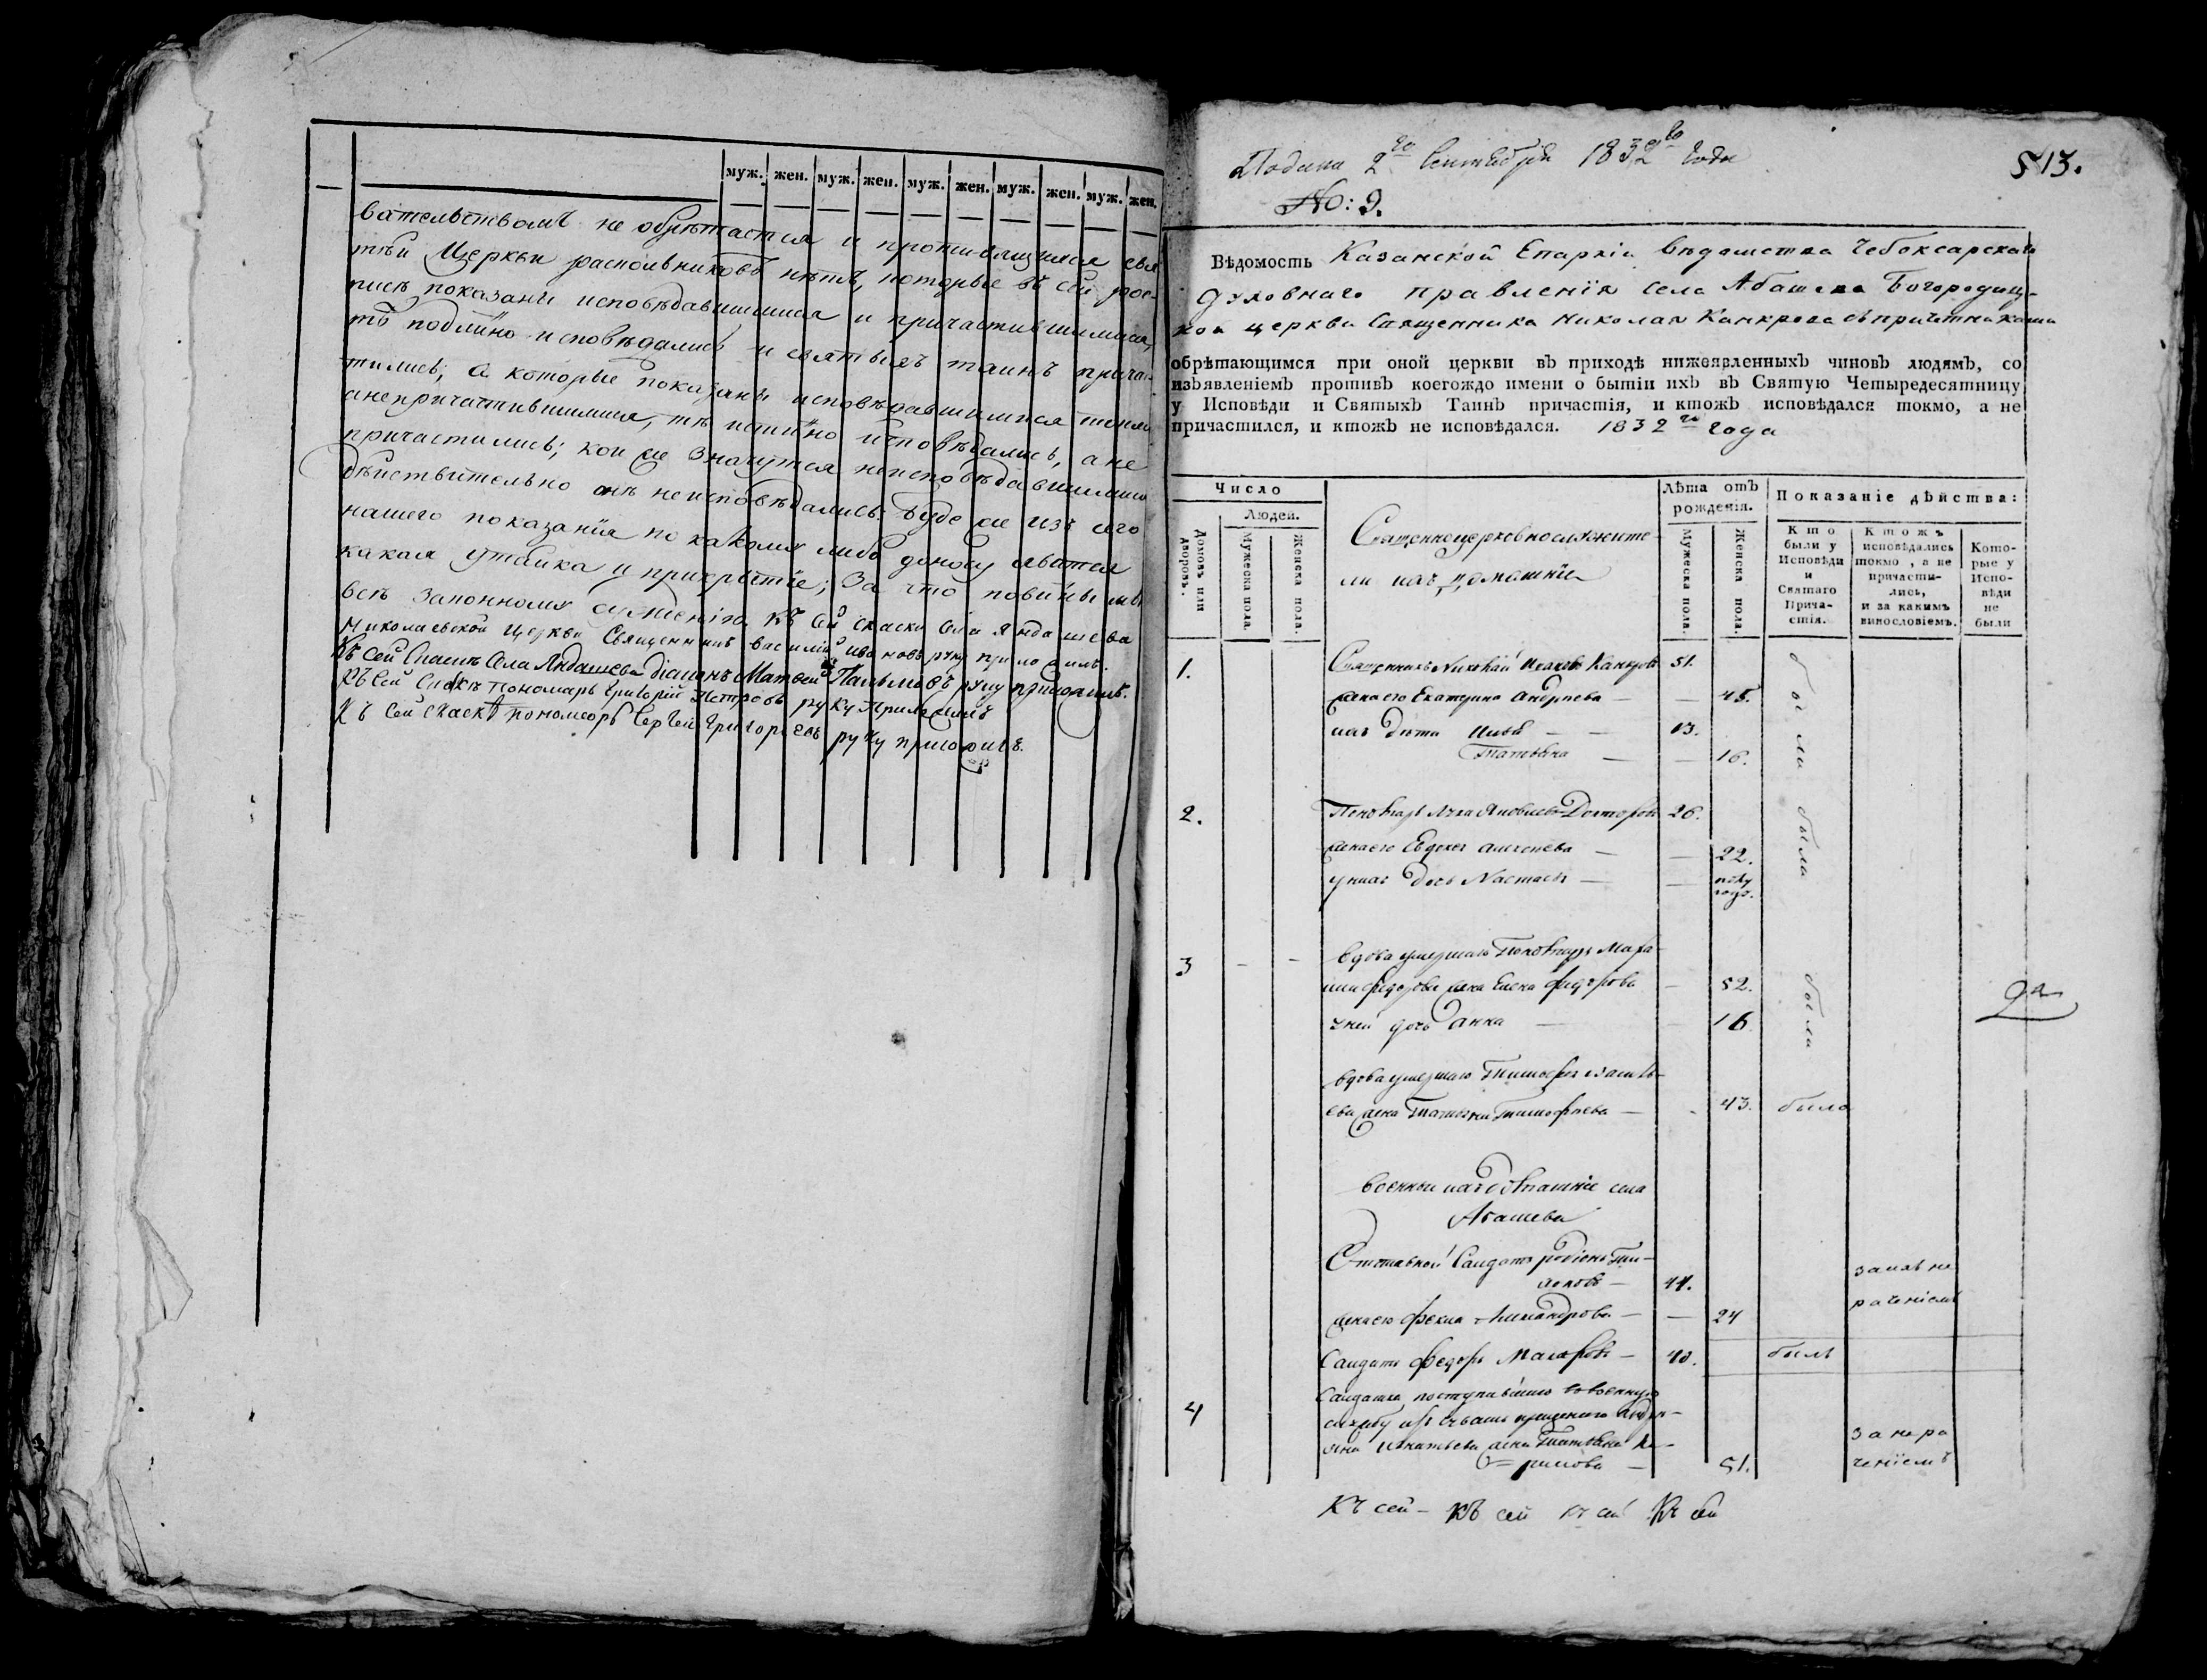 муж. жен. муж. жен. муж. жен. муж. жен. муж. жен.
вательствомъ не обрѣтается и противящихся свя
тѣй Церкви раскольниковъ нѣтъ, которые въ сей рос-
писѣ показаны исповѣдавшимися и причастившимися,
тѣ подлинно исповѣдались и святыхъ таинъ прича-
тились; а которые показаны исповѣдавшимися токмо
анепричастившимися, тѣ истинно исповѣдались, а не
причастились; кои же значутся неисповѣдавшимися
дѣйствительно онѣ неисповѣдались. Буде же изъ сего
нашего показанія по какому либо доносу явятся
какая утайка и прикрытіе; За что повинны
всѣ законному сужденію. Къ сей скаски села Яндашева
Николаевской Церкви Священникъ василий ивановъ руку приложилъ.
Къ сей Скаскѣ Села Яндашева Діаконъ Матвей Пальмовъ руку приложилъ.
Къ сей скаскѣ пономарь григорій Петровъ руку приложилъ
Къ сей скаскѣ пономоръ Сергей Григорьевъ руку приложилъ.
Подана 2го Сентября 1832го Года
513.
No: 9.
Вѣдомость Казанской Епархіи вѣдомства Чебоксарскаго
Духовнаго правленія села Абашева Богородиц-
кой церкви Священника Николая Канкрова съ причтниками
обрѣтающимся при оной церкви въ приходѣ нижеявленныхъ чиновъ людямъ, со
изъявленіемъ противъ коегождо имени о бытіи ихъ въ Святую Четыредесятницу
у Исповѣди и Святыхъ Таинъ причастія, и ктожъ исповѣдался токмо, а не
причастился, и ктожъ не исповѣдался. 1832го года
Число
Людей.
Домовъ или дворовъ.
Мужеска пола.
Женска пола.
Священноцерковнослужите-
ли ихъ домашніе
Лѣта отъ рожденія.
Мужеска пола.
Женска пола.
Показаніе дѣйства:
Кто были у Исповѣди и Святаго Причастія.
Ктожъ исповѣдались токмо, а не причастились, и за какимъ винословіемъ.
Которые у Исповѣди не были
1. Священникъ Николай Канкровъ 51.
жена его Екатерина Андреева — 45.
ихъ дѣти 13.
Татьяна — 16.
были
2. Пономарь Лука Яковлевъ 26.
жена его Евдокея — 22.
у нихъ дочь Настасья — полу года.
были
3 вдова умершаго Пономаря
Федорова жена Елена Федорова — 52.
у ней дочь Анна — 16
были
вдова умершаго Тимофея
жена Татьяна Тимофеева — 43. была
военныи ихъ домашніе села
Абашева
Отставной Салдатъ родіонъ
44.
жена его Фекла — 24
за нераченіемъ
Салдатъ Федоръ Макаровъ — 40. былъ
4 Салдатка поступившаго въ военную
службу изъ чувашъ крещенаго
Игнатьева жена Татьяна
— 51.
за нера
ченіемъ
Къ сей - Къ сей къ сей Къ сей